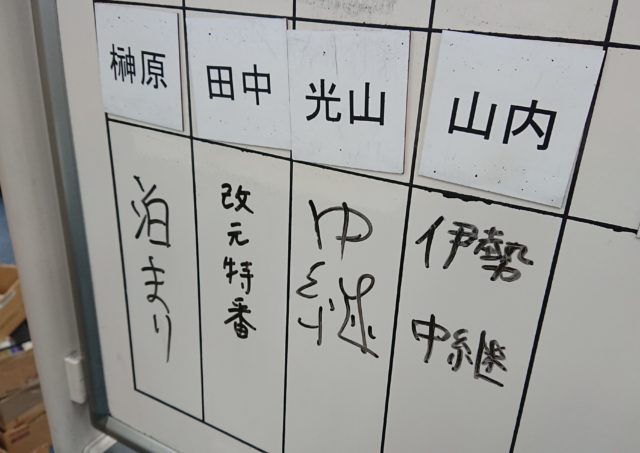 榊原
田中
光山
山内
泊まり
改元特番
中継
伊勢
中継